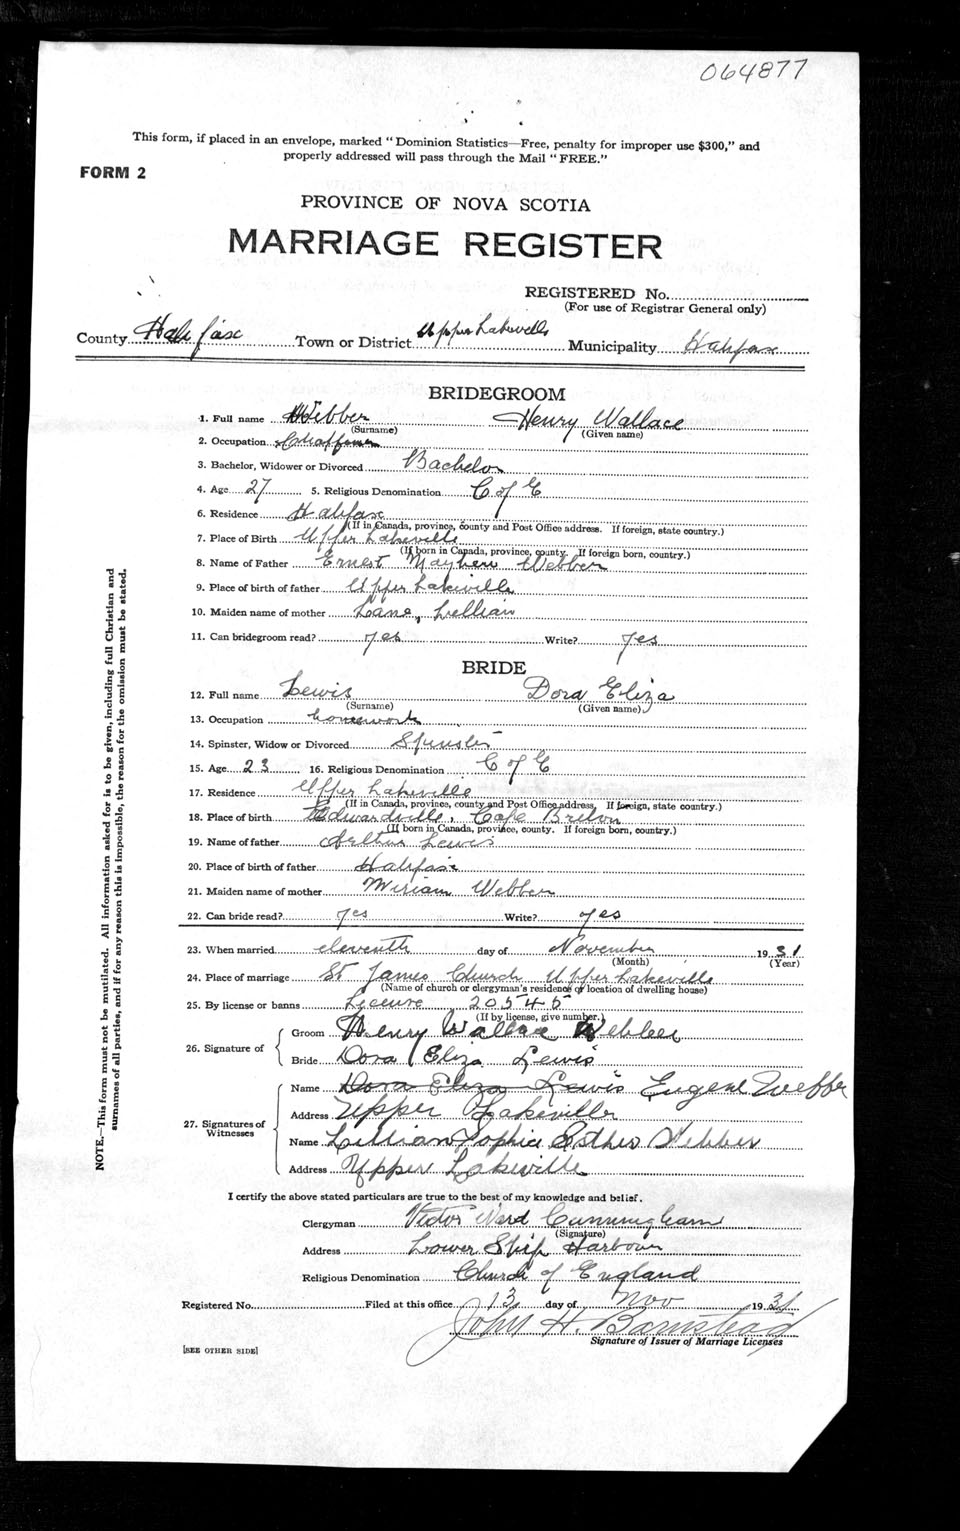 064877
This form, if placed in an envelope, marked "Dominion Statistics—Free, penalty for improper use $300," and
properly addressed will pass through the Mail "FREE."
FORM 2
PROVINCE OF NOVA SCOTIA
MARRIAGE REGISTER
REGISTERED No.
(For use of Registrar General only)
County Halifax Town or District Upper Lakeville Municipality Halifax
BRIDEGROOM
1. Full name Webber Henry Wallace
(Surname) (Given name)
2. Occupation
3. Bachelor, Widower or Divorced Bachelor
4. Age 27 5. Religious Denomination C of E
6. Residence Halifax
(If in Canada, province, county and Post Office address. If foreign, state country.)
7. Place of Birth Upper Lakeville
(If born in Canada, province, county. If foreign born, country.)
8. Name of Father Ernest Mayhew Webber
9. Place of birth of father Upper Lakeville
10. Maiden name of mother Lane, Lellian
11. Can bridegroom read? yes Write? yes
BRIDE
12. Full name Lewis Dora Eliza
(Surname) (Given name)
13. Occupation housework
14. Spinster, Widow or Divorced Spinster
15. Age 23 16. Religious Denomination C of E
17. Residence Upper Lakeville
(If in Canada, province, county and Post Office address, If foreign, state country.)
18. Place of birth Edwardville, Cape Breton
(If born in Canada, province, county. If foreign born, country.)
19. Name of father Arthur Lewis
20. Place of birth of father Halifax
21. Maiden name of mother Miriam Webber
22. Can bride read? yes Write? yes
23. When married eleventh day of November 1931
(Month) (Year)
24. Place of marriage St James Church Upper Lakeville
(Name of church or clergyman's residence or location of dwelling house)
25. By license or banns License 20545
(If by license, give number.)
26. Signature of
Groom Henry Wallace Webber
Bride Dora Eliza Lewis
27. Signatures of Witnesses
Name Dora Eliza Lewis Eugene Webber
Address Upper Lakeville
Name Lillian Sophia Esther Webber
Address Upper Lakeville
I certify the above stated particulars are true to the best of my knowledge and belief.
Clergyman Victor Ward Cunningham
(Signature)
Address Lower Ship Harbour
Religious Denomination Church of England
Registered No. Filed at this office 13 day of Nov 1931
John H. Barnstead
Signature of Issuer of Marriage Licenses
[SEE OTHER SIDE]
NOTE.—This form must not be mutilated. All information asked for is to be given, including full Christian and
surnames of all parties, and if for any reason this is impossible, the reason for the omission must be stated.